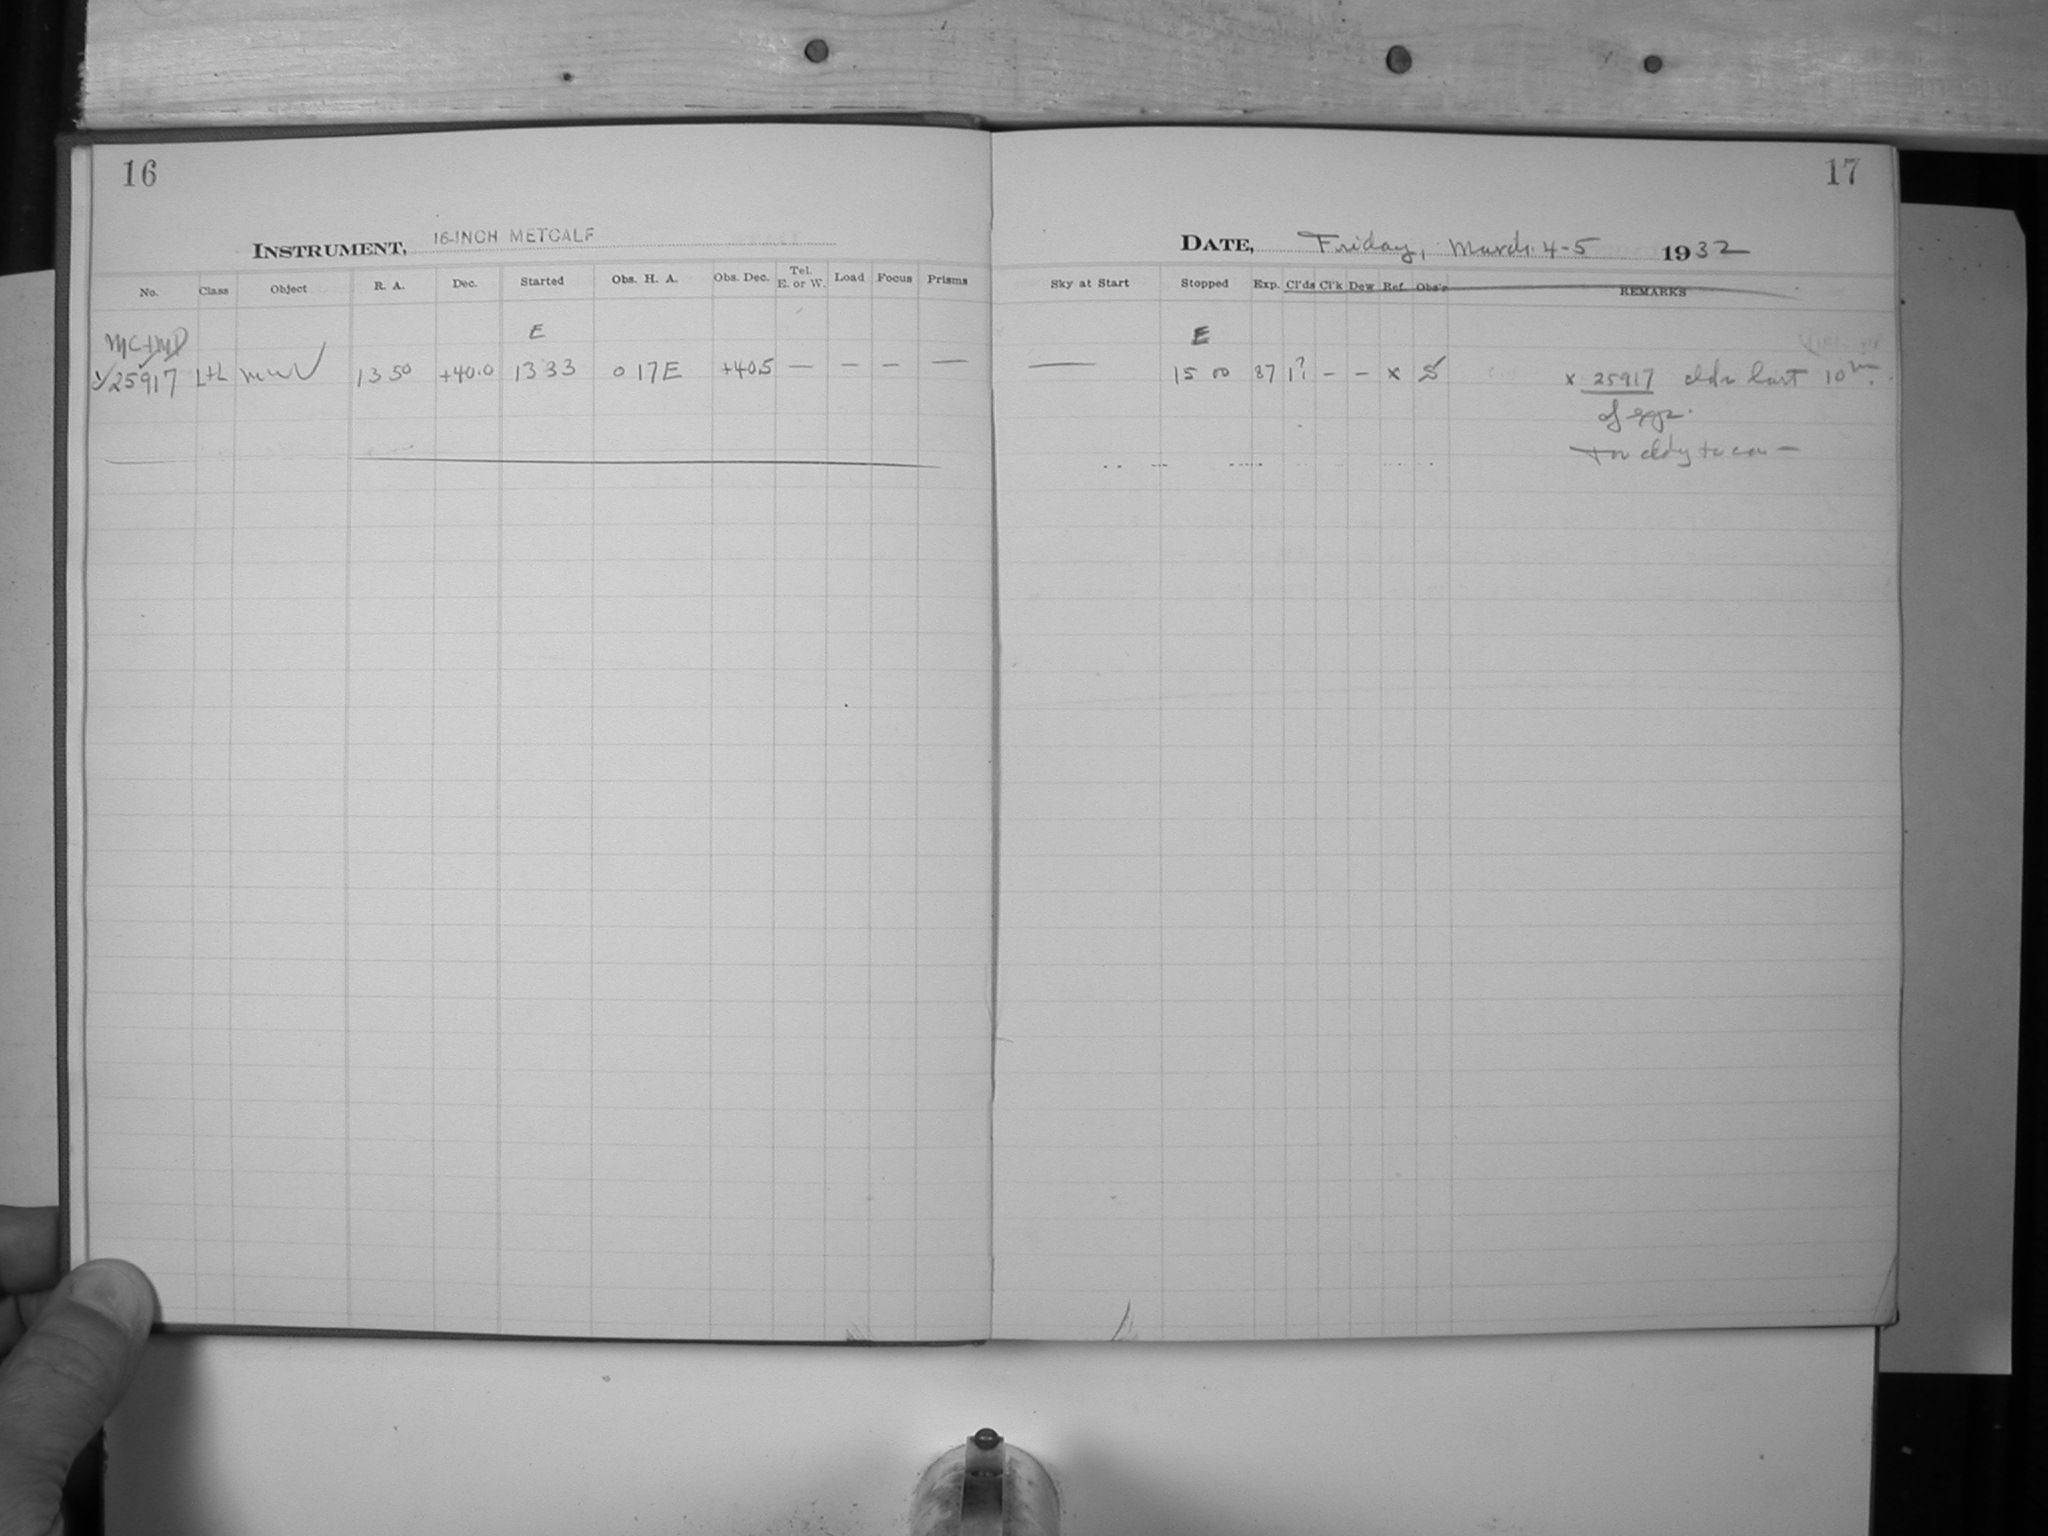 16
INSTRUMENT, 16-INCH METCALF
No. Class Object R. A. Dec. Started Obs. H. A. Obs. Dec. Tel. E. or W. Load Focus Prisms
MC+MD E
25917 L+L 13 50 +40.0 13 33 0 17 E +40.5 — — — —
17
DATE, Friday, March 4-5 1932
Sky at Start Stopped Exp. Cl'ds Cl'k Dew Ref. Obs'r REMARKS
E
— 15 00 87 1? - - x S x 25917 clds last 10m.
of exp.
Too cldy to con —